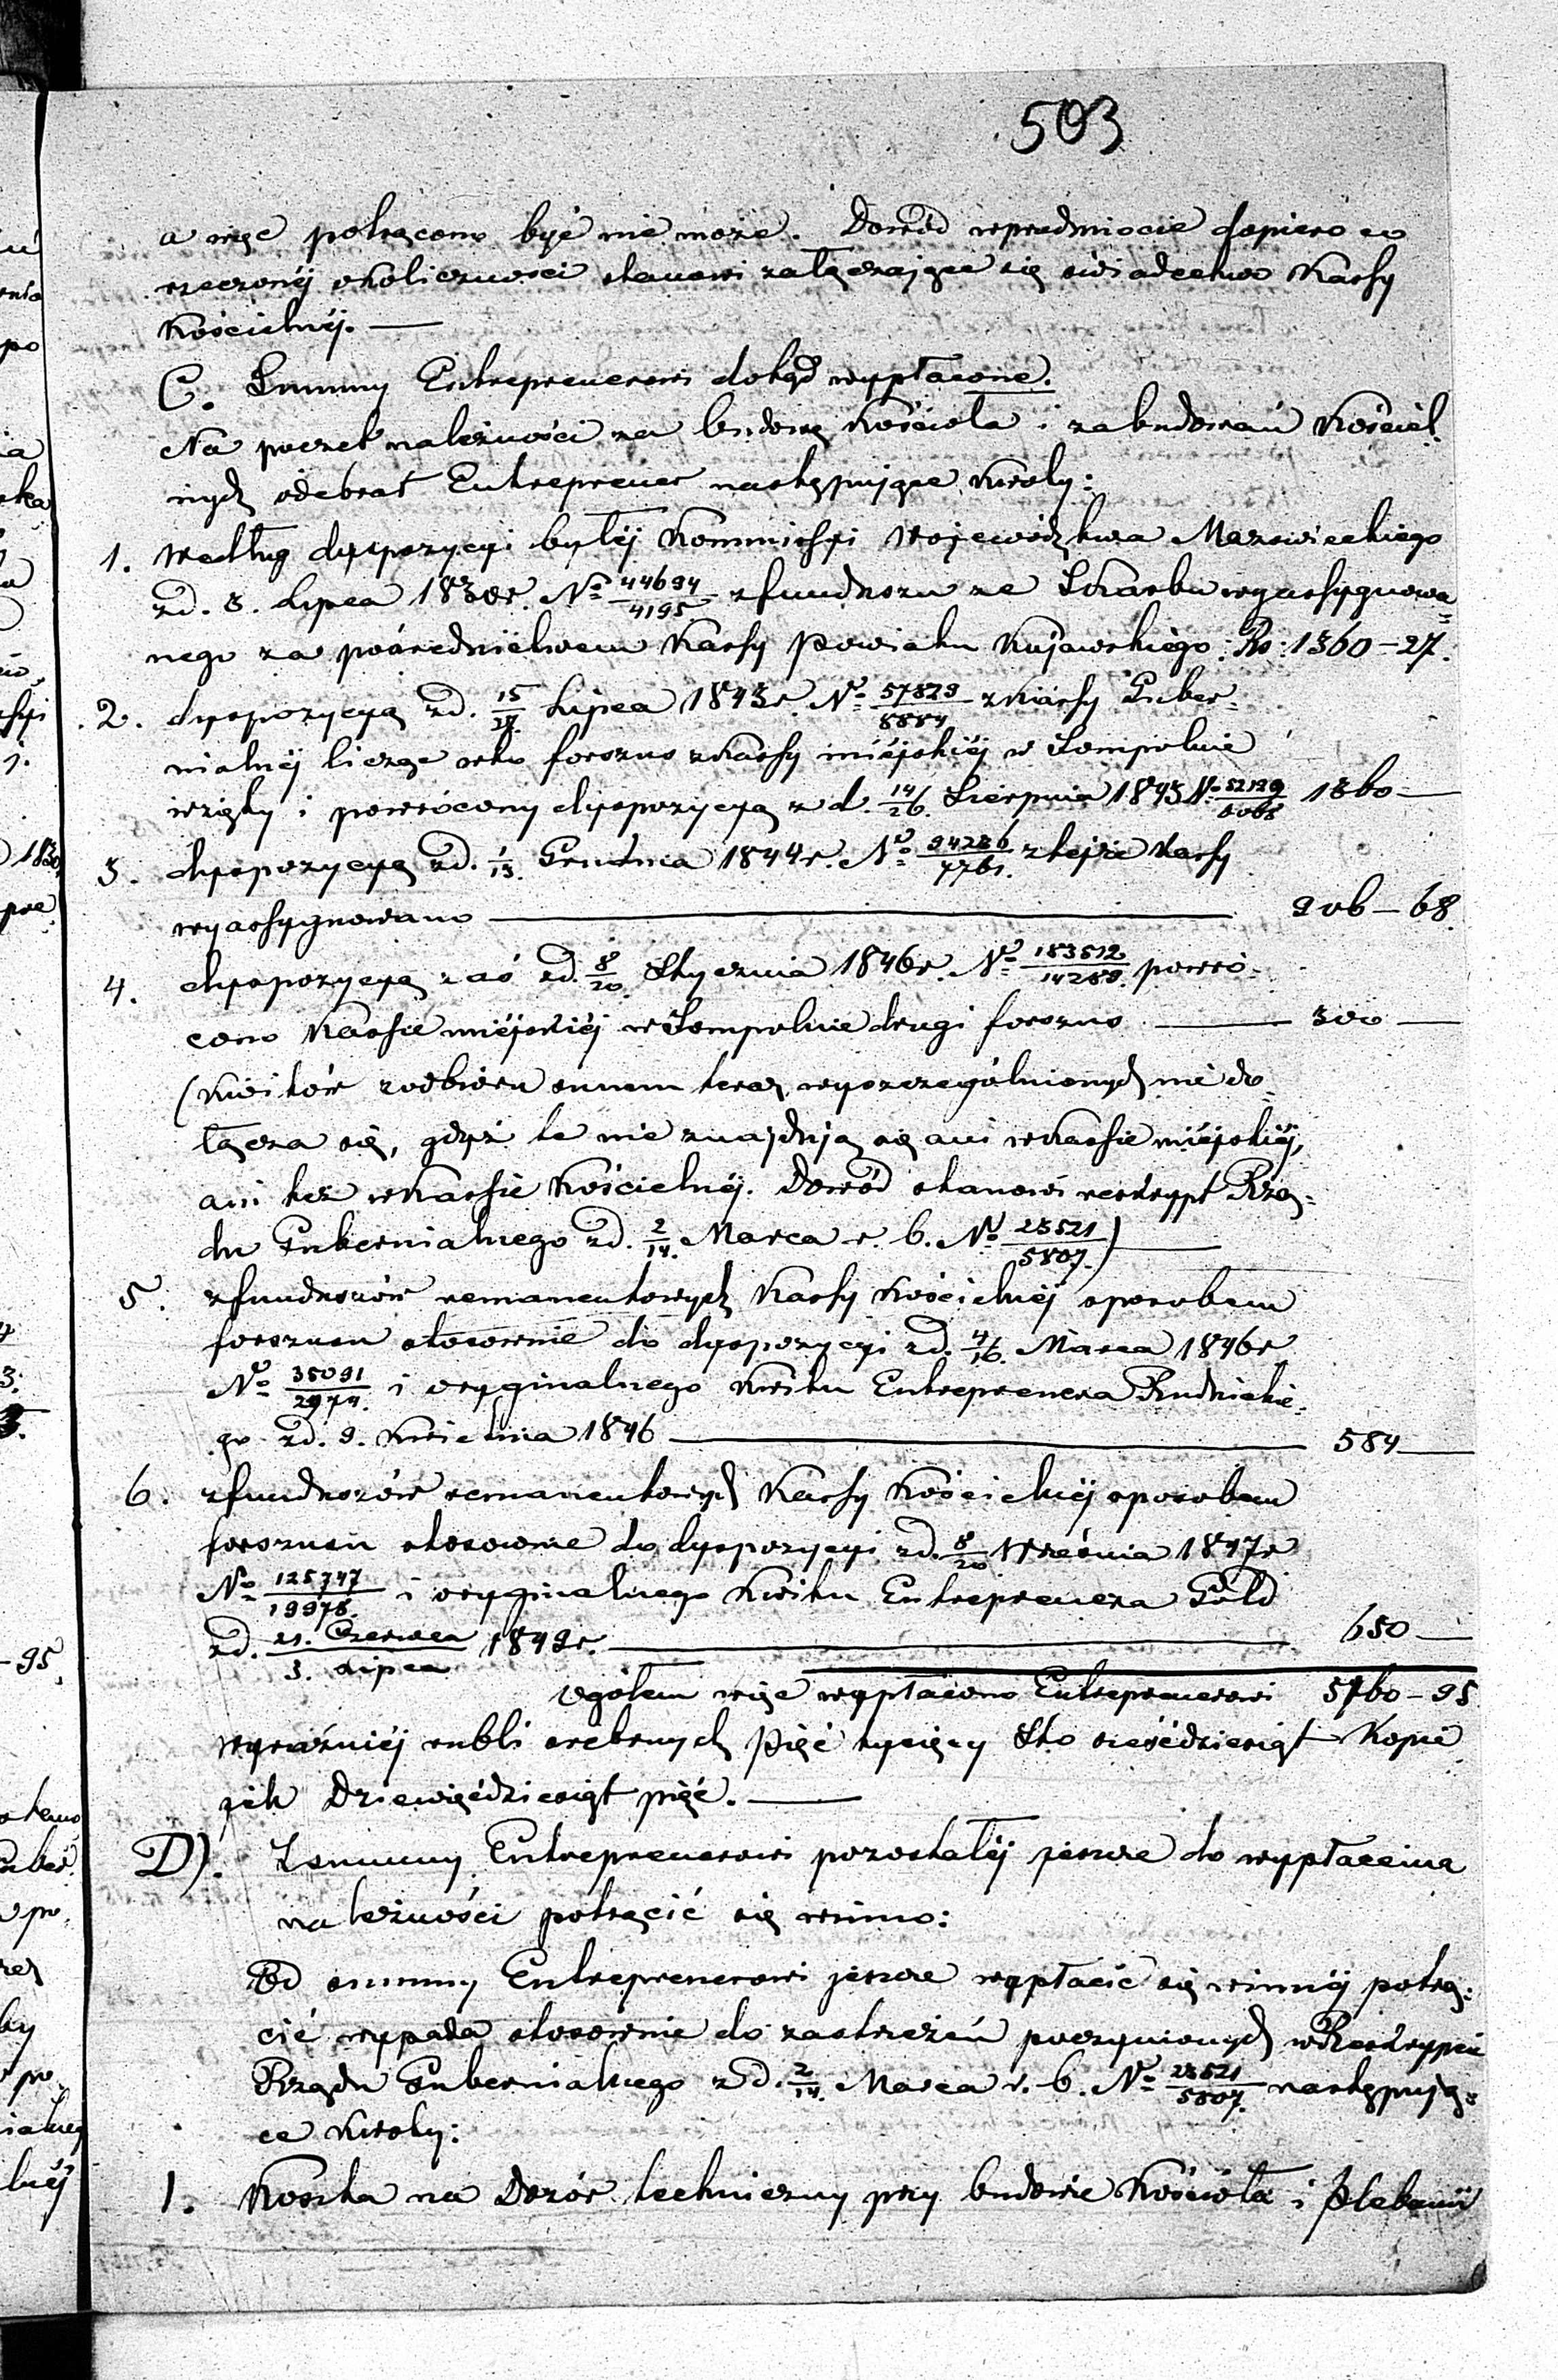 503
a więc potrącone być nie może. Dowód w przedmiocie dopiero co
rzeczonéj okoliczności stanowi załączające się świadectwo Kassy
Kościelnéj. —
C. Summy Entreprenerowi dotąd wypłacone.
Na poczet należności za budowę Kościoła i zabudowań Kościel
nych odebrał Entreprener następujące kwoty:
1. Według dyspozycyi byłéj Kommissyi Województwa Mazowieckiego
zd. 3. Lipca 1830r. No 44694/4195 z funduszu ze Skarbu wyassygnowa=
nego za pośrednictwem Kassy Powiatu Kujawskiego: Rs: 1360 – 27.
2. dyspozycyą zd. 15/27. Lipca 1843r. No 57829/8884 z Kassy Guber=
nialnéj licząc w to forszus z Kassy miéjskiéj w Sompolnie
wzięty i powrócony dyspozycyą z d. 14/26. Sierpnia 1843 No 52129 1360 —
3. dyspozycyą zd. 1/13. Grudnia 1844r. No 94236/7761. z tejże Kassy
wyassygnowano — 906 – 68.
4. dyspozycyą zaś zd. 8/20. Stycznia 1846r. No 183512/14289. powró=
cono Kassie miéjskiéj w Sompolnie drugi forszus — 300 —
(Kwitów z odbioru summ teraz wyszczególnionych nie do=
łącza się, gdyż te nie znajdują się ani w Kassie miéjskiéj,
ani też w Kassie Kościelnéj. Dowód stanowi reskrypt Rzą=
du Gubernialnego zd. 2/14. Marca r. b. No 23521/5807.) —
5. z funduszów remanentowych Kassy Kościelnéj sposobem
forszusu stosownie do dyspozycyi zd. 4/16. Marca 1846r
No 35091/2974. i oryginalnego kwitu Entreprenera Rudnickie=
go zd. 9. Kwietnia 1846 — 584 —
6. z funduszów remanentowych Kassy Kościelnéj sposobem
forszusu stosownie do dyspozycyi zd. 8/20 Września 1847r
No 125747/19978. i oryginalnego Kwitu Entreprenera Gold
zd. 21. Czerwca/3. Lipca 1849r. — 650 —
Ogółem więc wypłacono Entreprenerowi 5160 – 95
wyraźniéj rubli srebrnych pięć tysięcy sto sześćdziesiąt Kopié
jek dziewięćdziesiąt pięć. —
D). Z summy Entreprenerowi pozostałéj jeszcze do wypłacenia
należności potrącić się winno:
Od summy Entreprenerowi jeszcze wypłacić się winnéj potrą=
cić wypada stosownie do zastrzeżeń poczynionych w Reskrypcie
Rządu Gubernialnego z d. 2/14. Marca r. b. No 23521/5807. następują=
ce kwoty:
1. Koszta na Dozór techniczny przy budowie Kościoła i Plebanii